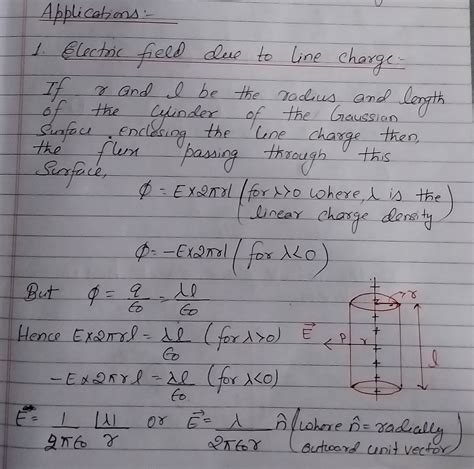 Applications:-
1. Electric field due to line charge:-
If r and l be the radius and length
of the cylinder of the Gaussian
Surface enclosing the line charge then,
the flux passing through this
Surface,
ϕ = E×2πrl (for λ>0 where, λ is the
linear charge density)
ϕ = -E×2πrl (for λ<0)
But ϕ = q/ε₀ = λl/ε₀
Hence E×2πrl = λl/ε₀ (for λ>0)
-E×2πrl = λl/ε₀ (for λ<0)
E = 1/2πε₀ |λ|/r or E⃗ = λ/2πε₀r n̂ (where n̂ = radially
outward unit vector)
r
E⃗ P r
l